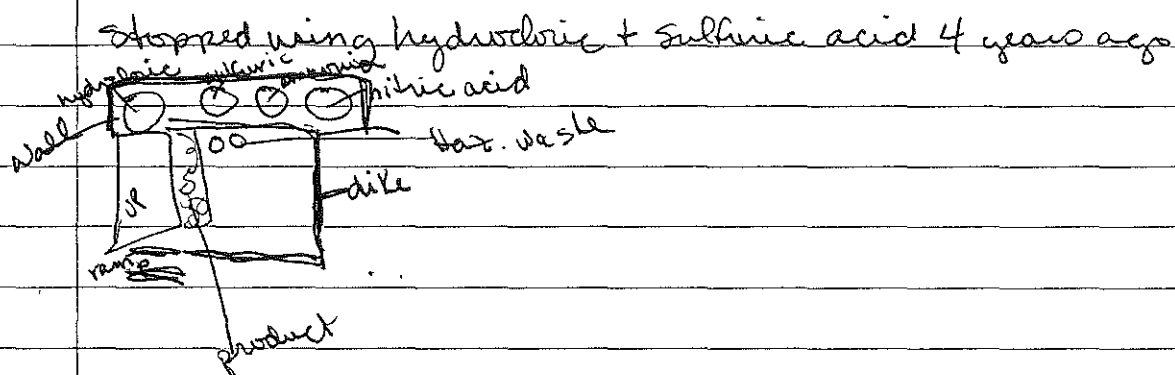 stopped using hydrocloric + sulfuric acid 4 years ago
hydrocloric sulfuric ammonia
nitric acid
wall
Haz. waste
dike
UP
ramp
product